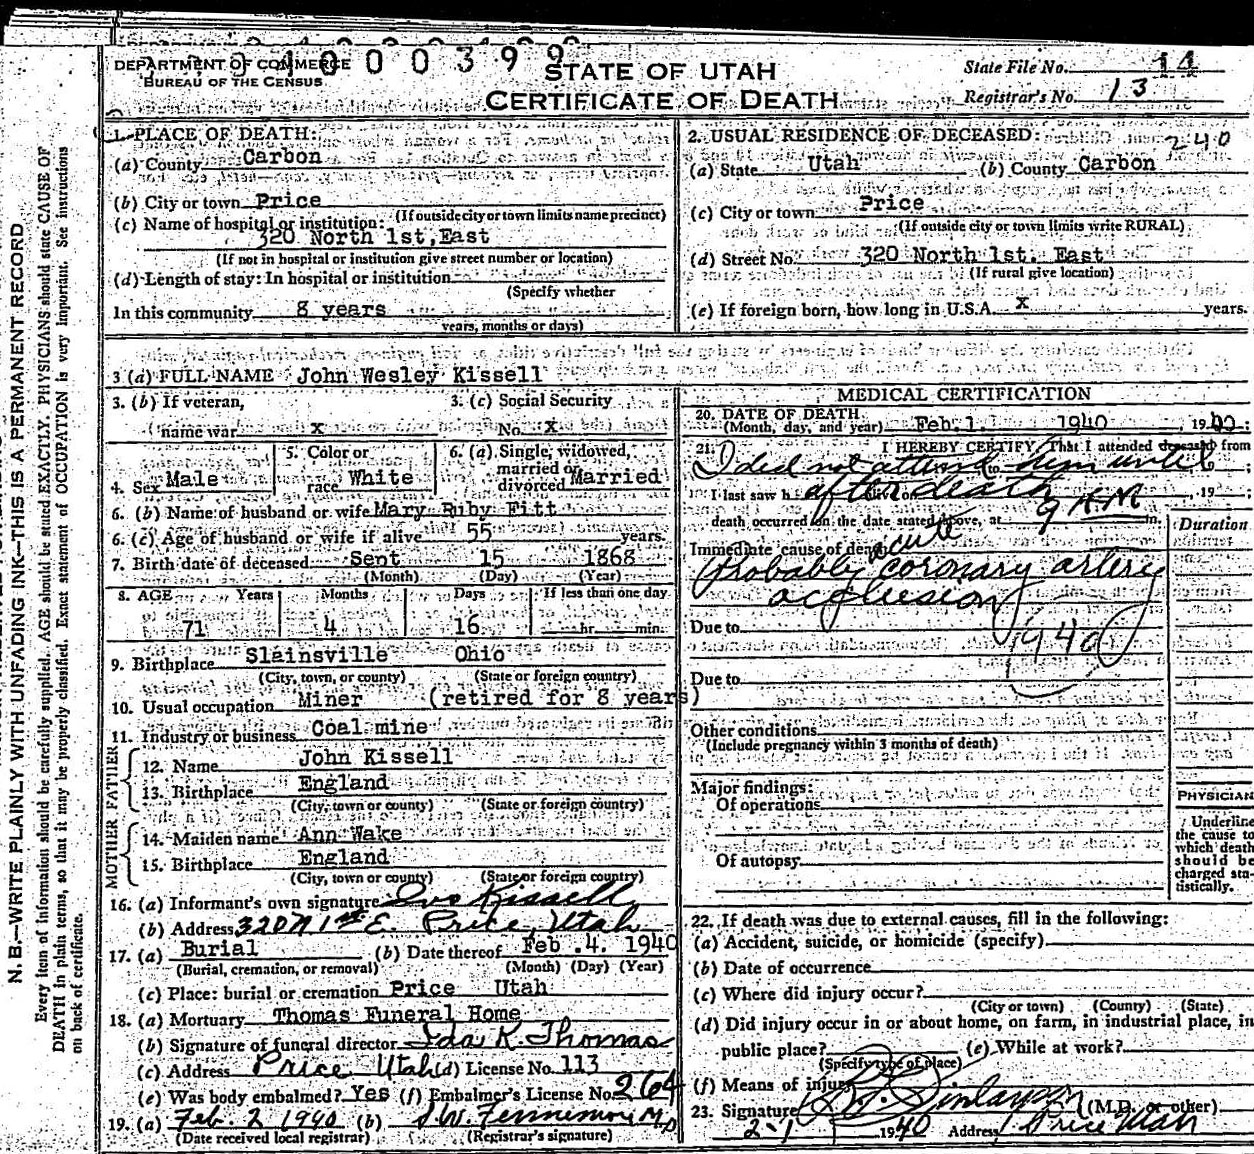 DEPARTMENT OF COMMERCE
BUREAU OF THE CENSUS
0 0 0 3 9 9
STATE OF UTAH
CERTIFICATE OF DEATH
State File No. 14
Registrar's No. 13
1. PLACE OF DEATH:
(a) County Carbon
(b) City or town Price
(If outside city or town limits name precinct)
(c) Name of hospital or institution:
320 North 1st, East
(If not in hospital or institution give street number or location)
(d) Length of stay: In hospital or institution
(Specify whether
In this community 8 years
years, months or days)
2. USUAL RESIDENCE OF DECEASED:
240
(a) State Utah (b) County Carbon
(c) City or town Price
(If outside city or town limits write RURAL)
(d) Street No. 320 North 1st. East
(If rural give location)
(e) If foreign born, how long in U.S.A. x years.
3 (a) FULL NAME John Wesley Kissell
3. (b) If veteran,
name war x
3. (c) Social Security
No. x
4. Sex Male
5. Color or
race White
6. (a) Single, widowed,
married or
divorced Married
6. (b) Name of husband or wife Mary Ruby Fitt
6. (c) Age of husband or wife if alive 55 years.
7. Birth date of deceased Sent 15 1868
(Month) (Day) (Year)
8. AGE Years Months Days If less than one day
71 4 16 hr. min.
9. Birthplace Slainsville Ohio
(City, town, or county) (State or foreign country)
10. Usual occupation Miner (retired for 8 years)
11. Industry or business Coal mine
FATHER
12. Name John Kissell
13. Birthplace England
(City, town or county) (State or foreign country)
MOTHER
14. Maiden name Ann Wake
15. Birthplace England
(City, town or county) (State or foreign country)
16. (a) Informant's own signature Kissell
(b) Address 320 N 1st E. Price, Utah
17. (a) Burial (b) Date thereof Feb .4. 1940
(Burial, cremation, or removal) (Month) (Day) (Year)
(c) Place: burial or cremation Price Utah
18. (a) Mortuary Thomas Funeral Home
(b) Signature of funeral director Ida K. Thomas
(c) Address Price Utah (d) License No. 113
(e) Was body embalmed? Yes (f) Embalmer's License No. 264
19. (a) Feb. 2 1940 (b)
(Date received local registrar) (Registrar's signature)
MEDICAL CERTIFICATION
20. DATE OF DEATH
(Month, day, and year) Feb. 1. 1940, 1940:
21. I HEREBY CERTIFY, That I attended deceased from
I did not attend to him until
I last saw h after death, 19
death occurred on the date stated above, at 9 A.M m.
Duration
Immediate cause of death acute
Probably coronary artery
occlusion
Due to
1940
Due to
Other conditions
(Include pregnancy within 3 months of death)
Major findings:
Of operations
Of autopsy
PHYSICIAN
Underline
the cause to
which death
should be
charged sta-
tistically.
22. If death was due to external causes, fill in the following:
(a) Accident, suicide, or homicide (specify)
(b) Date of occurrence
(c) Where did injury occur?
(City or town) (County) (State)
(d) Did injury occur in or about home, on farm, in industrial place, in
public place? (e) While at work?
(Specify type of place)
(f) Means of injury
23. Signature (M.D. or other)
2-1 1940 Address Price Utah
N. B.—WRITE PLAINLY WITH UNFADING INK—THIS IS A PERMANENT RECORD
Every item of information should be carefully supplied. AGE should be stated EXACTLY. PHYSICIANS should state CAUSE OF
DEATH in plain terms, so that it may be properly classified. Exact statement of OCCUPATION is very important. See instructions
on back of certificate.